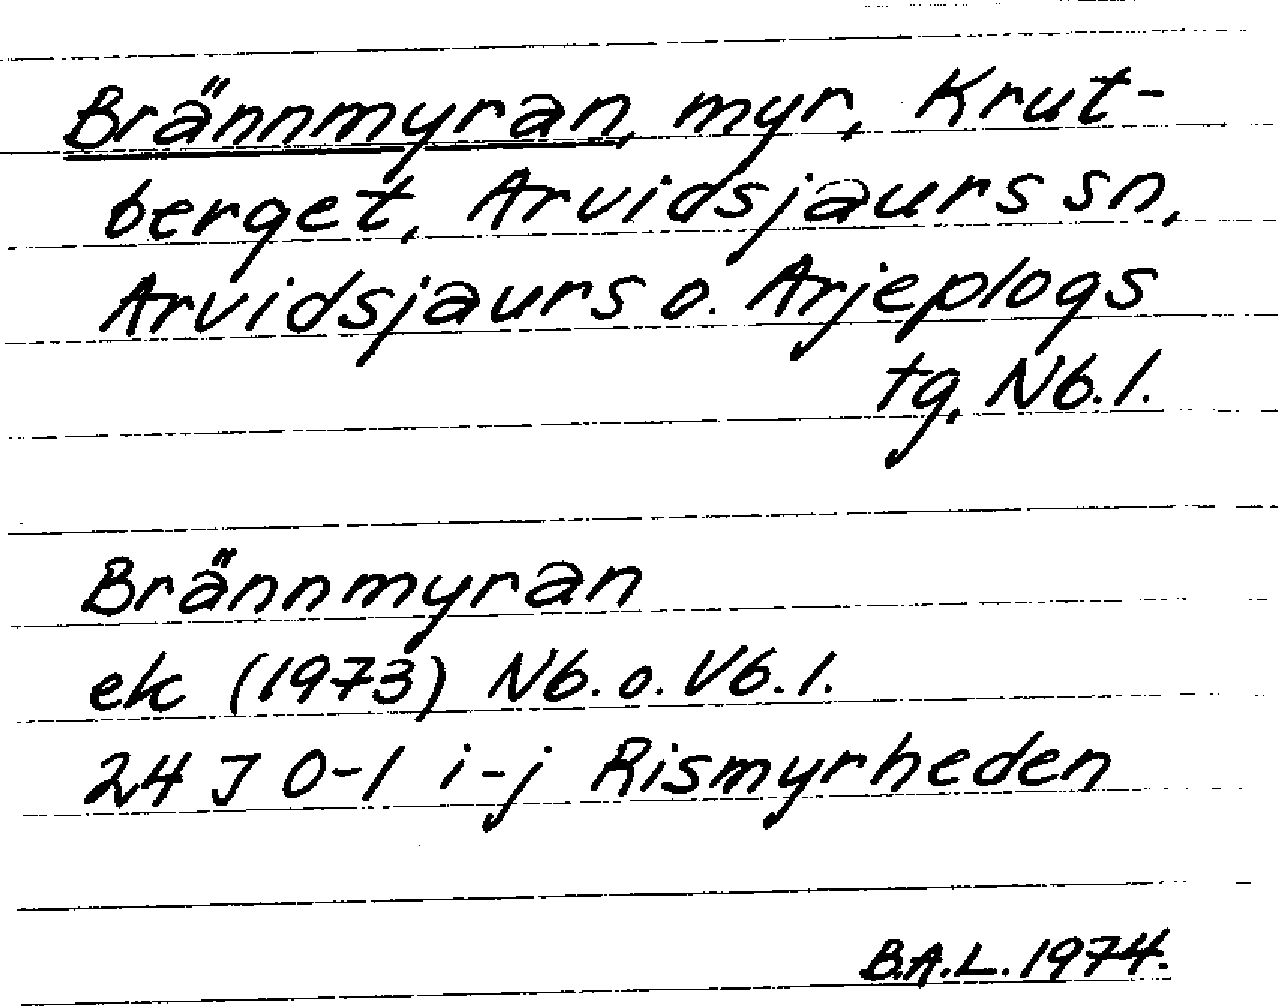 Brännmyran, myr, Krut-
berget, Arvidsjaurs sn,
Arvidsjaurs o. Arjeplogs
tg, Nb. l.
Brännmyran
ek (1973) Nb. o. Vb. l.
24 J 0-1 i-j Rismyrheden
B.A.L. 1974.